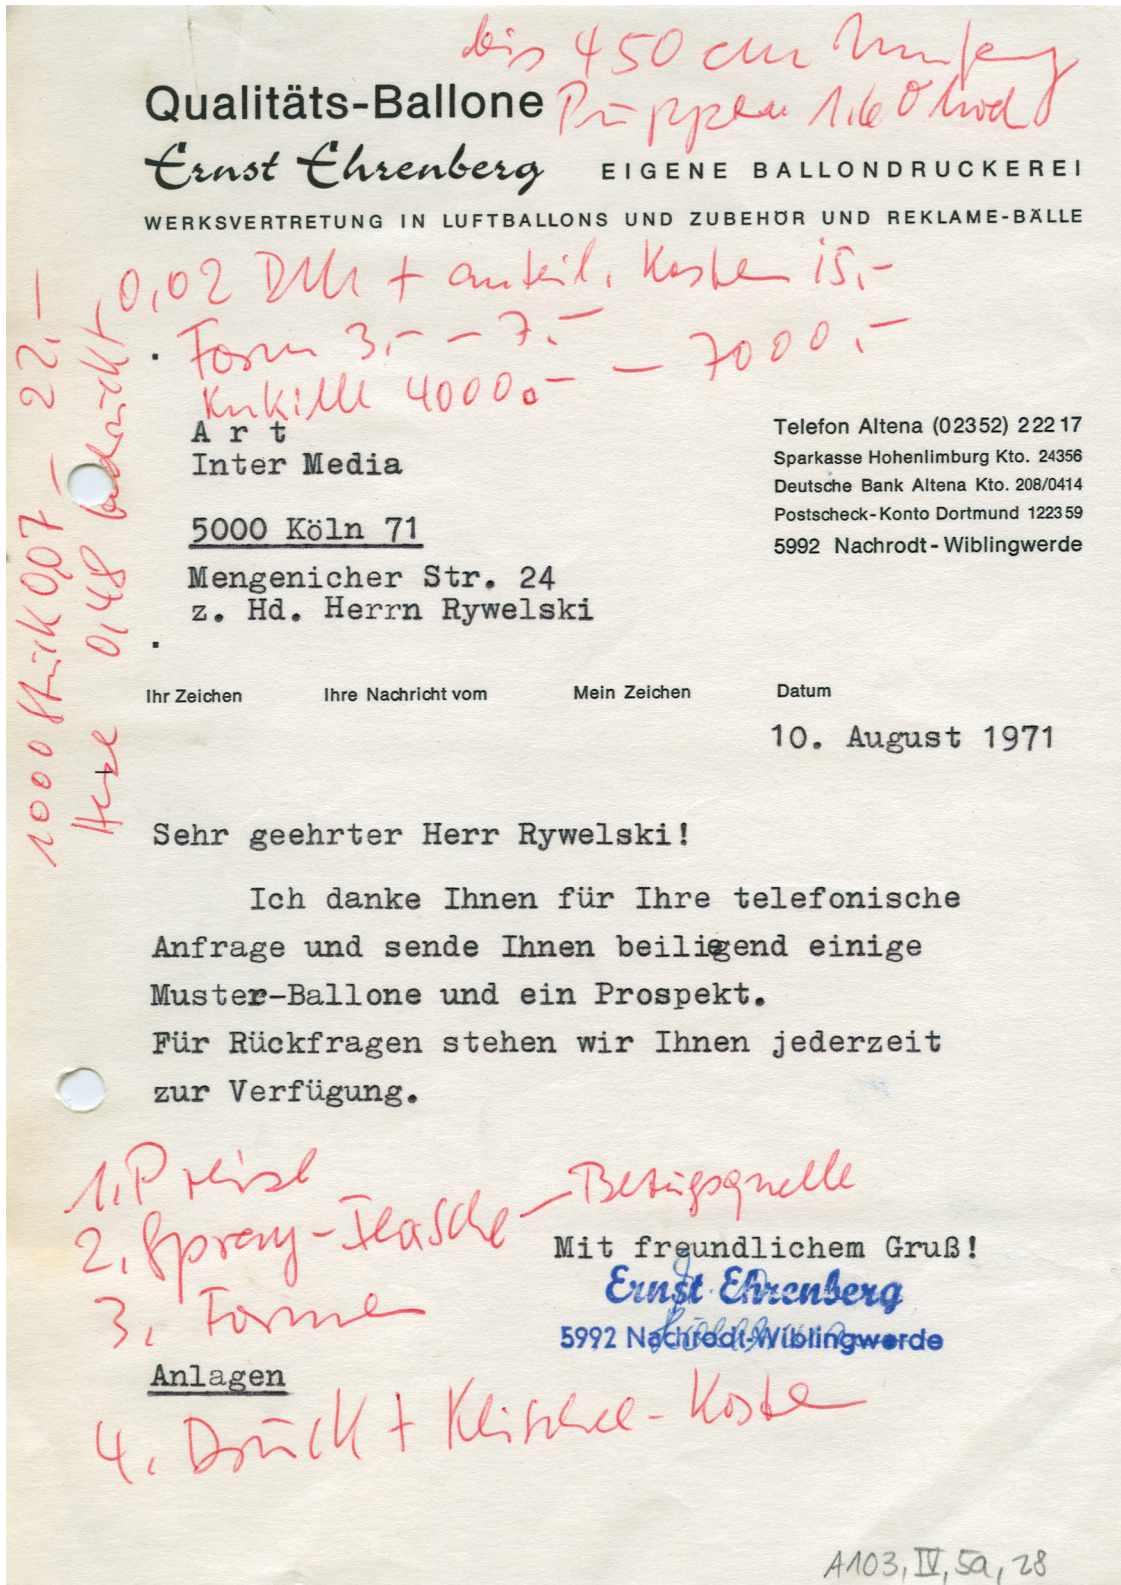 bis 450 cm Umfang
Qualitäts-Ballone
Puppen 1.60 hoch
Ernst Ehrenberg EIGENE BALLONDRUCKEREI
WERKSVERTRETUNG IN LUFTBALLONS UND ZUBEHÖR UND REKLAME-BÄLLE
0,02 DM + anteil. Kosten 15,-
Form 3,- - 7.-
Kukille 4000.- - 7000,-
1000 Stück 0,07 - 22,-
Herze 0,48 bedruckt
A r t
Inter Media
5000 Köln 71
Mengenicher Str. 24
z. Hd. Herrn Rywelski
Telefon Altena (02352) 22217
Sparkasse Hohenlimburg Kto. 24356
Deutsche Bank Altena Kto. 208/0414
Postscheck-Konto Dortmund 122359
5992 Nachrodt-Wiblingwerde
Ihr Zeichen Ihre Nachricht vom Mein Zeichen Datum
10. August 1971
Sehr geehrter Herr Rywelski!
Ich danke Ihnen für Ihre telefonische
Anfrage und sende Ihnen beiliegend einige
Muster-Ballone und ein Prospekt.
Für Rückfragen stehen wir Ihnen jederzeit
zur Verfügung.
1. Preise
2. Spray-Flasche - Bezugsquelle
3. Formen
Mit freundlichem Gruß!
Ernst Ehrenberg
5992 Nachrodt-Wiblingwerde
Anlagen
4. Druck + Klischee-Kosten
A103, IV, 5a, 28